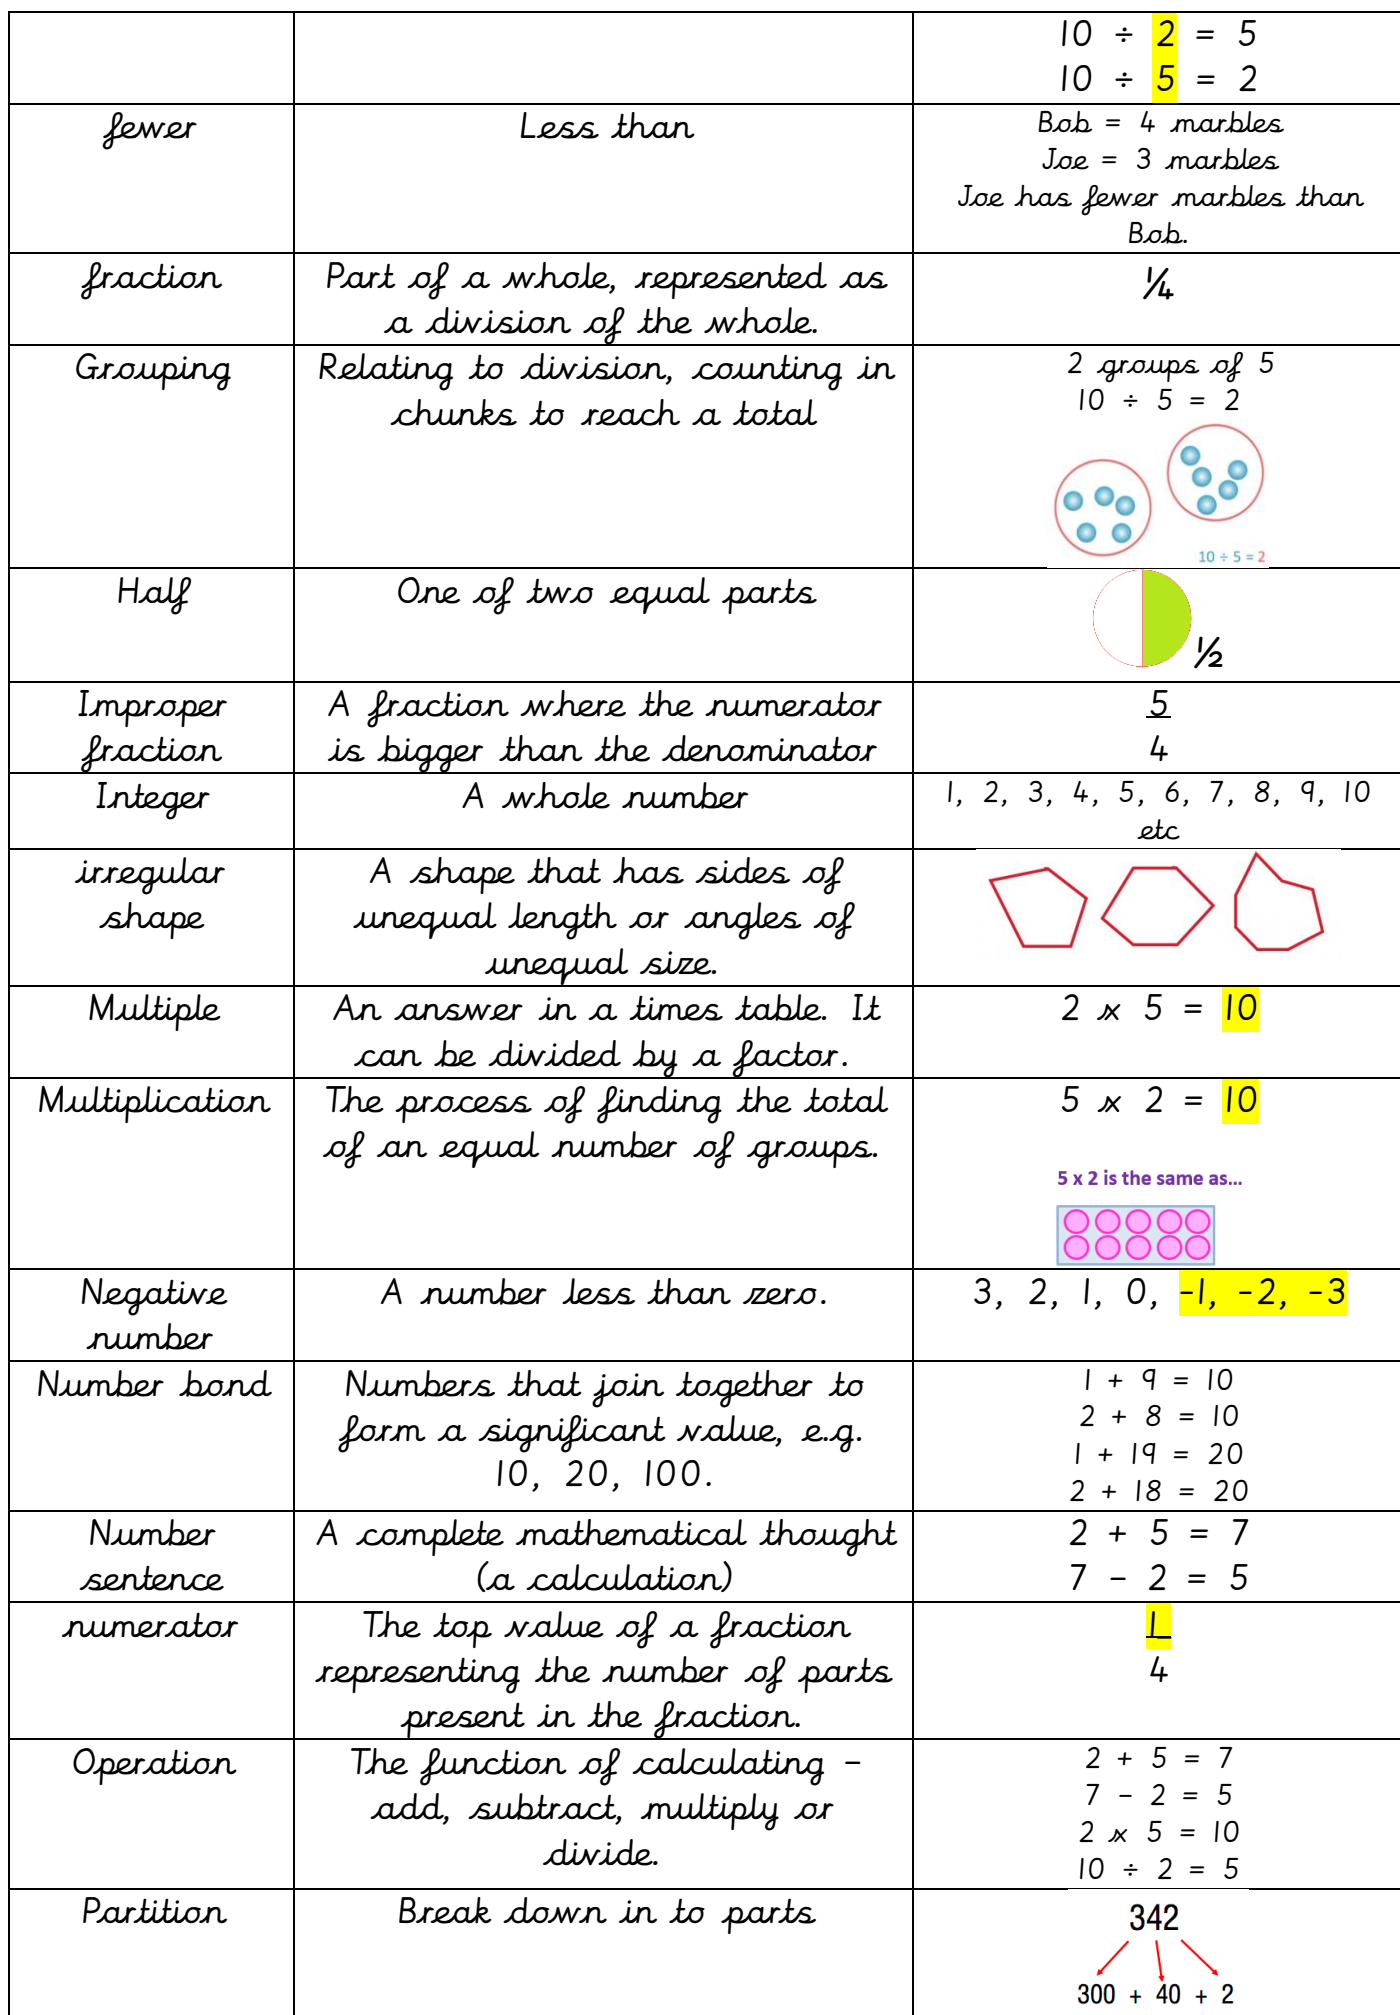 10 ÷ 2 = 5
10 ÷ 5 = 2
fewer
Less than
Bob = 4 marbles
Joe = 3 marbles
Joe has fewer marbles than
Bob.
fraction
Part of a whole, represented as
a division of the whole.
¼
Grouping
Relating to division, counting in
chunks to reach a total
2 groups of 5
10 ÷ 5 = 2
10 ÷ 5 = 2
Half
One of two equal parts
½
Improper
fraction
A fraction where the numerator
is bigger than the denominator
5
4
Integer
A whole number
1, 2, 3, 4, 5, 6, 7, 8, 9, 10
etc
irregular
shape
A shape that has sides of
unequal length or angles of
unequal size.
Multiple
An answer in a times table. It
can be divided by a factor.
2 x 5 = 10
Multiplication
The process of finding the total
of an equal number of groups.
5 x 2 = 10
5 x 2 is the same as...
Negative
number
A number less than zero.
3, 2, 1, 0, -1, -2, -3
Number bond
Numbers that join together to
form a significant value, e.g.
10, 20, 100.
1 + 9 = 10
2 + 8 = 10
1 + 19 = 20
2 + 18 = 20
Number
sentence
A complete mathematical thought
(a calculation)
2 + 5 = 7
7 - 2 = 5
numerator
The top value of a fraction
representing the number of parts
present in the fraction.
1
4
Operation
The function of calculating –
add, subtract, multiply or
divide.
2 + 5 = 7
7 - 2 = 5
2 x 5 = 10
10 ÷ 2 = 5
Partition
Break down in to parts
342
300 + 40 + 2